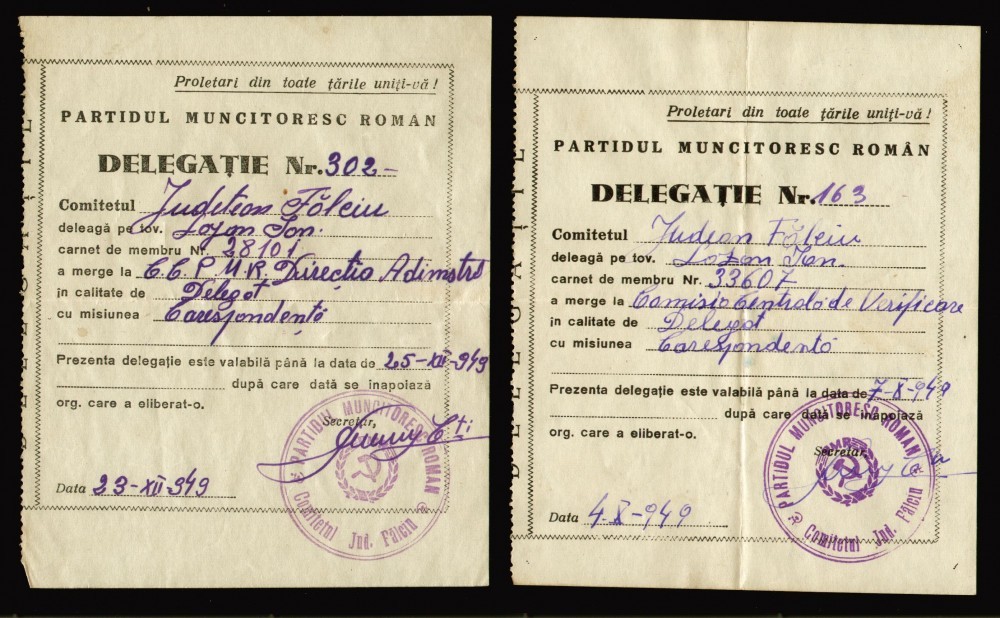 Proletari din toate țările uniți-vă!
PARTIDUL MUNCITORESC ROMÂN
DELEGAȚIE Nr. 302-
Comitetul Județean Fălciu
deleagă pe tov. Lozon Ion.
carnet de membru Nr. 28101
a merge la C.C.P.M.R. Direcția Adimstrt
în calitate de Delegat
cu misiunea Corespondență
Prezenta delegație este valabilă până la data de 25-XII-949
după care dată se înapoiază
org. care a eliberat-o.
Secretar,
Data 23-XII-949
PARTIDUL MUNCITORESC ROMÂN
Comitetul Jud. Fălciu
Proletari din toate țările uniți-vă!
PARTIDUL MUNCITORESC ROMÂN
DELEGAȚIE Nr. 163
Comitetul Județean Fălciu
deleagă pe tov. Lozon Ion.
carnet de membru Nr. 33607
a merge la Comisia Centrală de Verificare
în calitate de Delegat
cu misiunea Corespondență
Prezenta delegație este valabilă până la data de 7-X-949
după care dată se înapoiază
org. care a eliberat-o.
Secretar,
Data 4-X-949
PARTIDUL MUNCITORESC ROMÂN
PMR
Comitetul Jud. Fălciu